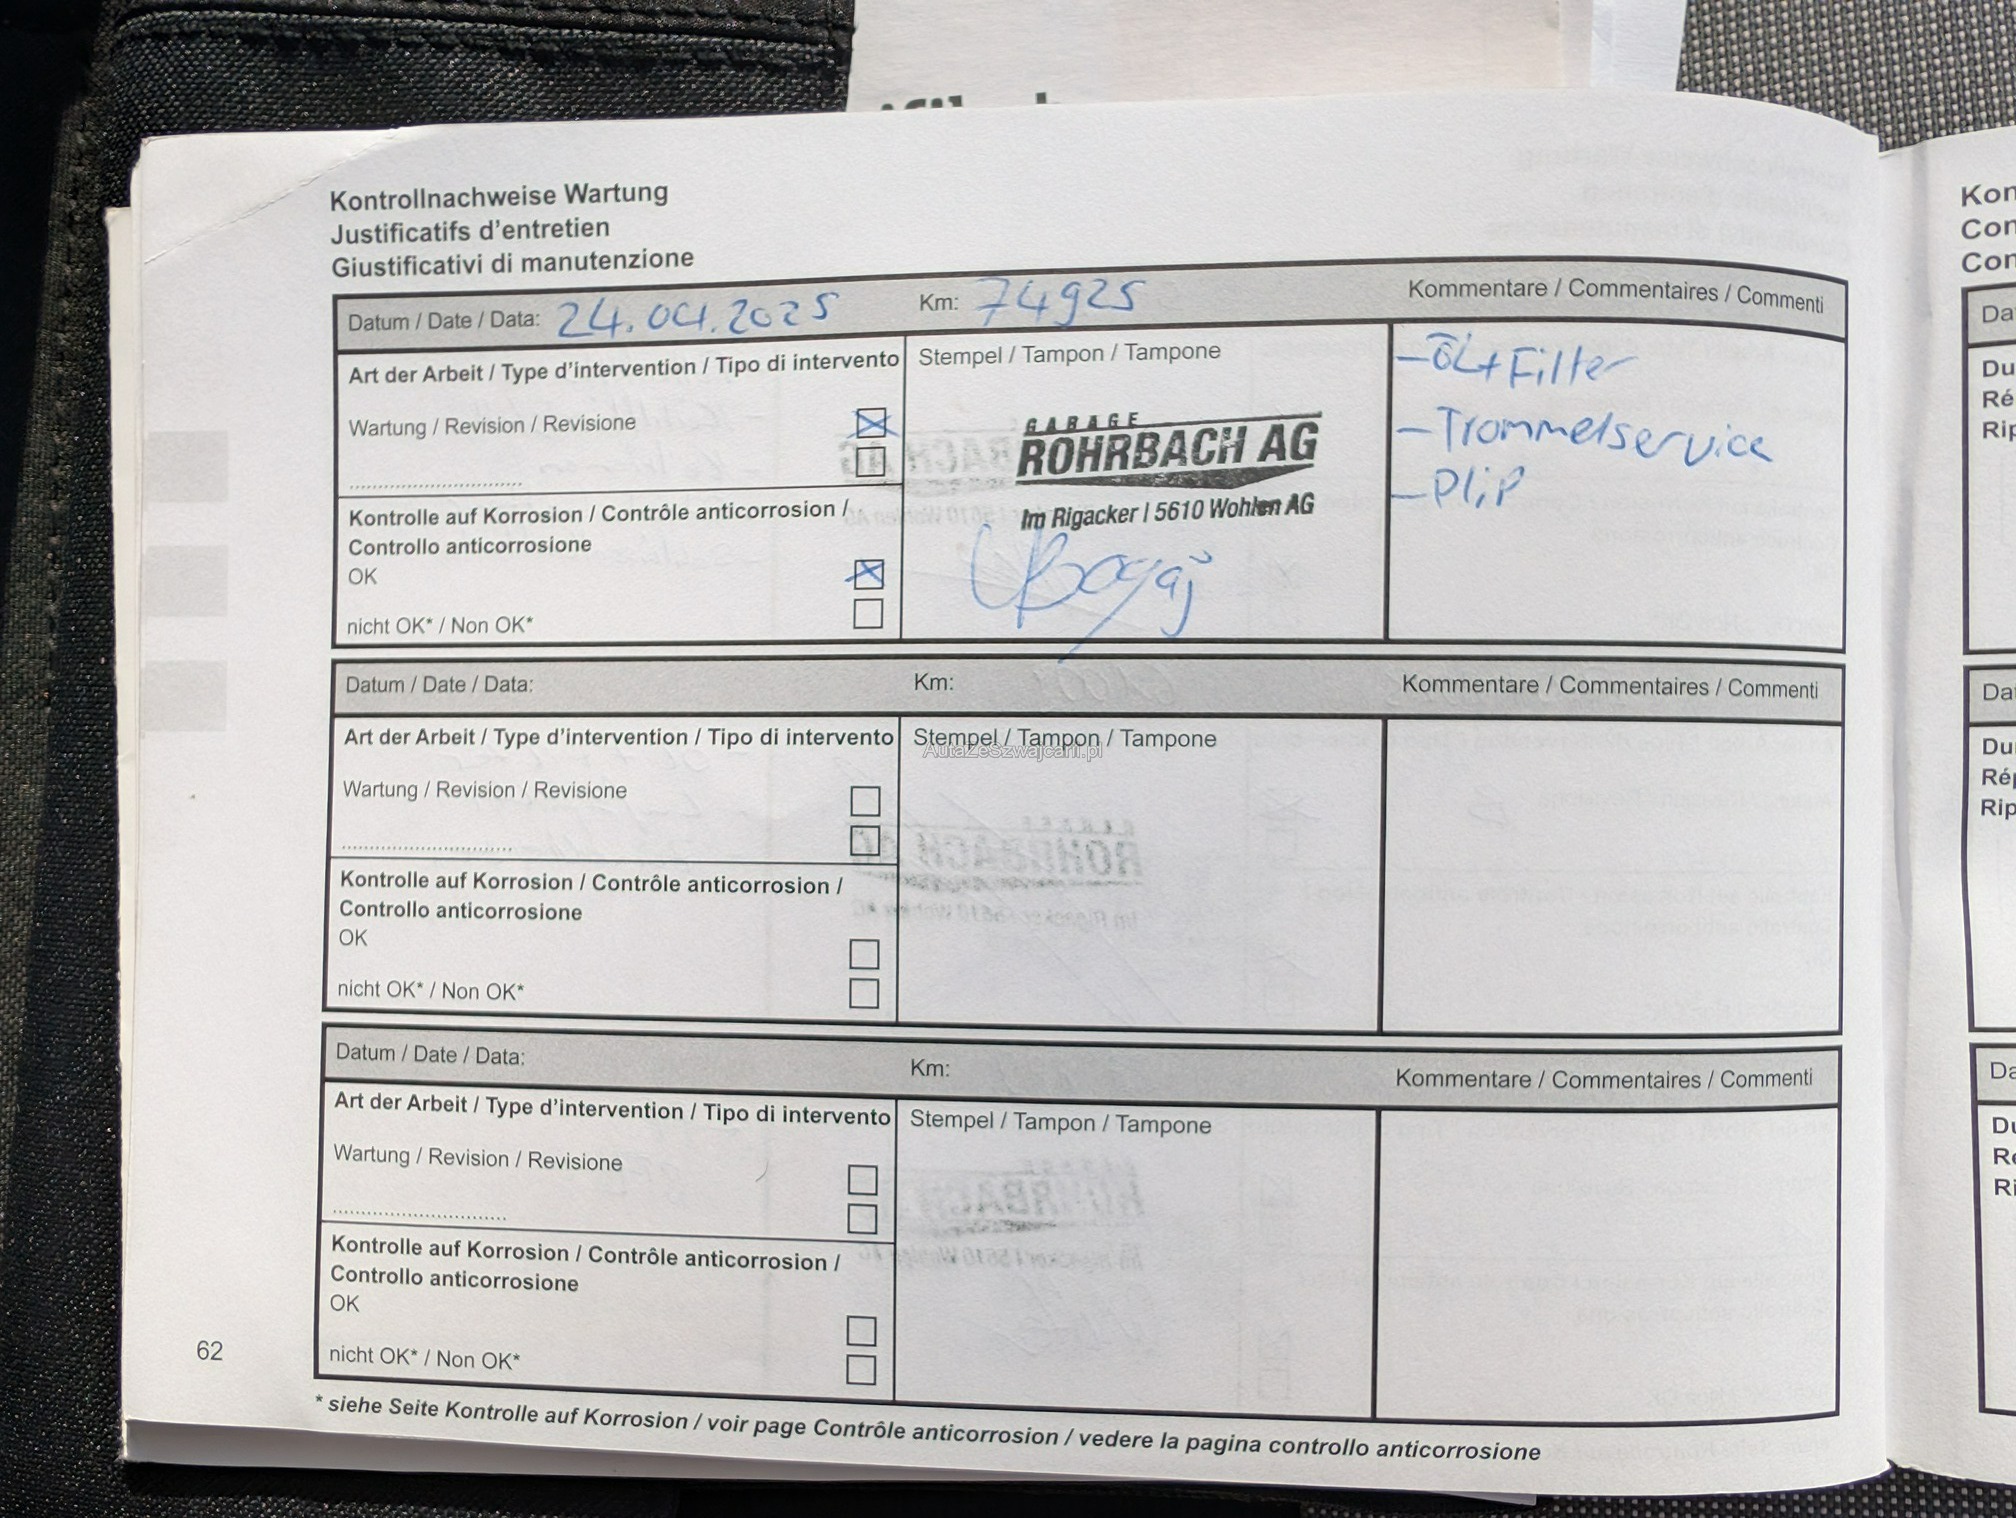 Kontrollnachweise Wartung
Justificatifs d'entretien
Giustificativi di manutenzione
Datum / Date / Data: 24.04.2025 Km: 74925 Kommentare / Commentaires / Commenti
Art der Arbeit / Type d'intervention / Tipo di intervento
Stempel / Tampon / Tampone
- ÖL+Filter
Wartung / Revision / Revisione
GARAGE
ROHRBACH AG
- Trommelservice
..............................
- Plip
Kontrolle auf Korrosion / Contrôle anticorrosion /
Im Rigacker | 5610 Wohlen AG
Controllo anticorrosione
OK
nicht OK* / Non OK*
Datum / Date / Data: Km: Kommentare / Commentaires / Commenti
Art der Arbeit / Type d'intervention / Tipo di intervento
Stempel / Tampon / Tampone
AutaZeSzwajcarii.pl
Wartung / Revision / Revisione
..............................
Kontrolle auf Korrosion / Contrôle anticorrosion /
Controllo anticorrosione
OK
nicht OK* / Non OK*
Datum / Date / Data: Km: Kommentare / Commentaires / Commenti
Art der Arbeit / Type d'intervention / Tipo di intervento
Stempel / Tampon / Tampone
Wartung / Revision / Revisione
..............................
Kontrolle auf Korrosion / Contrôle anticorrosion /
Controllo anticorrosione
OK
nicht OK* / Non OK*
62
* siehe Seite Kontrolle auf Korrosion / voir page Contrôle anticorrosion / vedere la pagina controllo anticorrosione